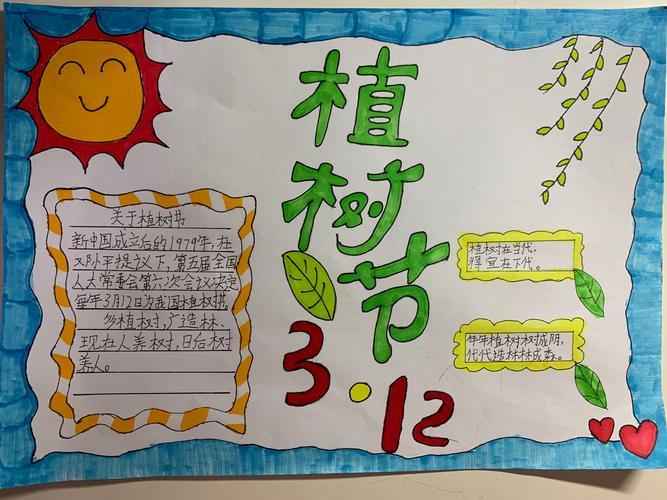 植
树
节
3·12
关于植树
新中国成立后的1979年,在
邓小平提议下,第五届全国
人大常委会第六次会议决定
每年3月12日为我国植树
多植树,广造林,
现在人养树,日后树
养人。
植树在当代,
得宜在下代。
年年植树树成阴,
代代造林林成森。